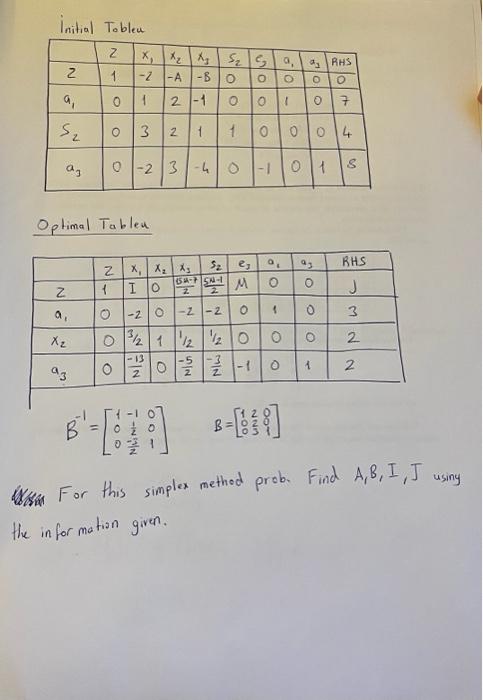 Initial Tableu
Z x₁ x₂ x₃ S₂ e₃ a₁ a₃ RHS
Z 1 -2 -A -B 0 0 0 0 0
a₁ 0 1 2 -1 0 0 1 0 7
S₂ 0 3 2 1 1 0 0 0 4
a₃ 0 -2 3 -4 0 -1 0 1 8
Optimal Tableu
Z x₁ x₂ x₃ S₂ e₃ a₁ a₃ RHS
Z 1 I 0 (5M-1)/2 M 0 0 J
a₁ 0 -2 0 -2 -2 0 1 0 3
x₂ 0 3/2 1 1/2 1/2 0 0 0 2
a₃ 0 -13/2 0 -5/2 -3/2 -1 0 1 2
B⁻¹ = [1 -1 0; 0 1/2 0; 0 -3/2 1] B = [1 2 0; 0 2 0; 0 3 1]
For this simplex method prob. Find A, B, I, J using
the information given.